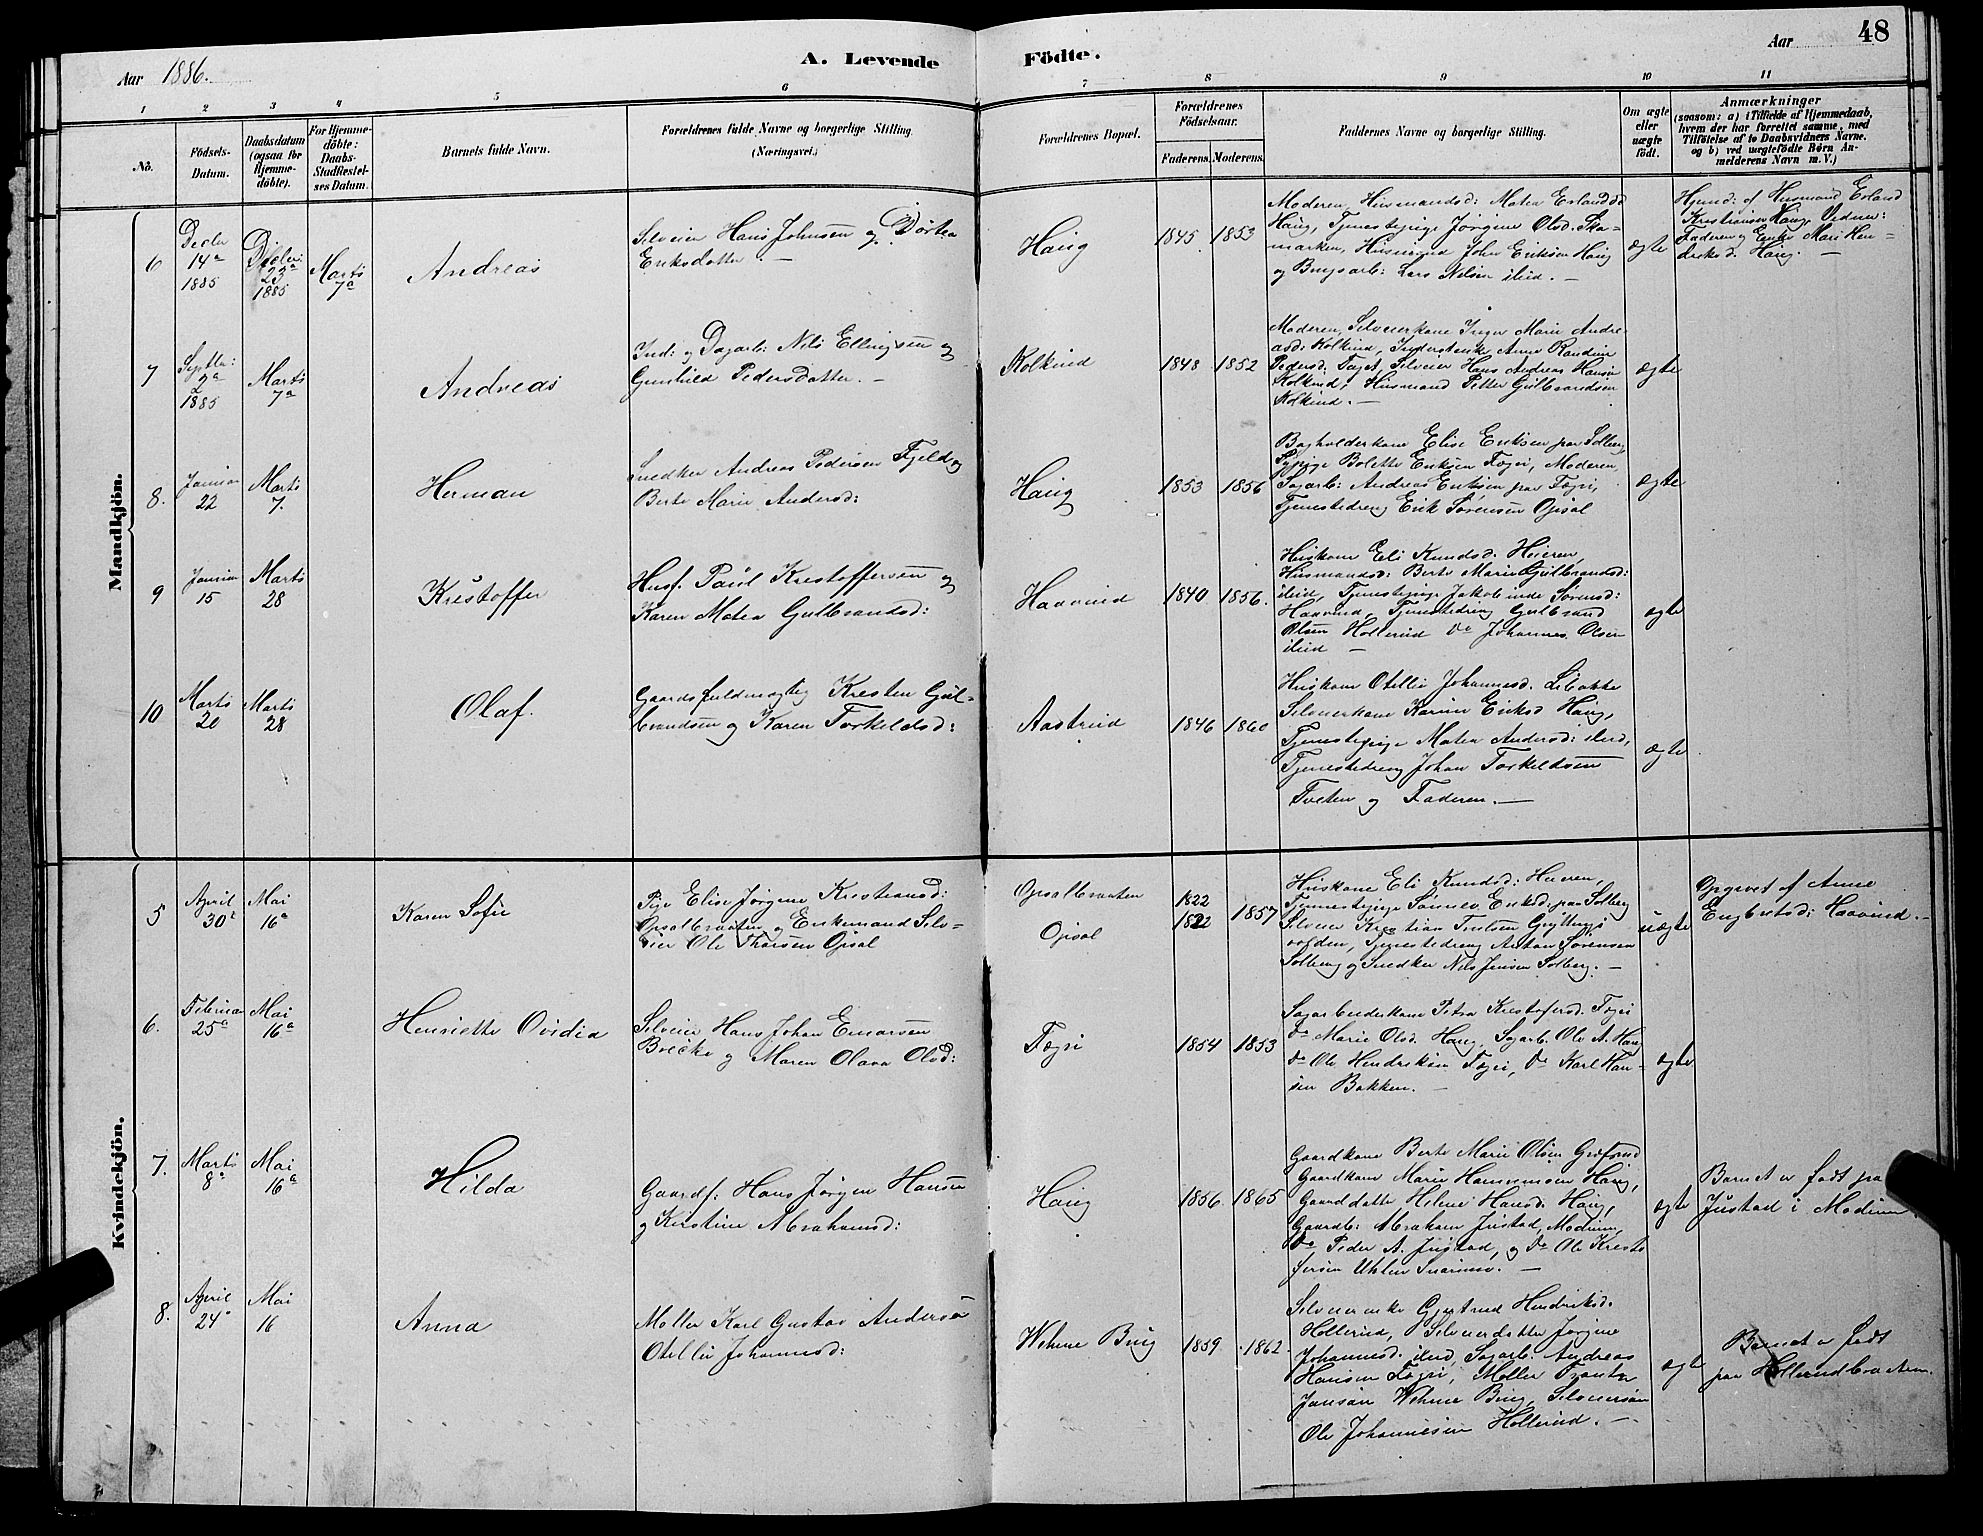 Aar 1886.
A. Levende
Födte.
Aar
48
1 2 3 4 5 6 7 8 9 10 11
No.
Födsels-
Datum.
Daabsdatum
(ogsaa for
Hjemme-
döbte).
For Hjemme-
döbte:
Daabs-
Stadfæstel-
ses Datum.
Barnets fulde Navn.
Forældrenes fulde Navne og borgerlige Stilling.
(Næringsvei.)
Forældrenes Bopæl.
Forældrenes
Födselsaar.
Faderens. Moderens.
Faddernes Navne og borgerlige Stilling.
Om ægte
eller
uægte
födt.
Anmærkninger
(saasom: a) i Tilfælde af Hjemmedaab,
hvem der har forrettet samme, med
Tilföielse af to Daabsvidners Navne.
og b) ved uægtefödte Börn An-
melderens Navn m. V.)
Mandkjön.
6
Decbr
14de
1885
Decbr
23de
1885
Marts
7de
Andreas
Selveier Hans Johnsen og Dörtea
Eriksdatter. —
Haug
1845 1853
Moderen, Husmandsd: Matea Erlandsd
Haug, Tjenestepige Jörgine Olsd. Ska-
marken, Husmand John Eriksen Haug
og Brugsarb: Lars Nilsen ibid. —
ægte
Hjemd: af Husmand Erland
Kristiansen Haug. Vidner:
Faderen og Enke Mari Hen-
driksd. Haug. —
7
Septbr:
2de
1885
Marts
7de
Andreas
Ind: og Dagarb: Nils Ellingsen og
Gunhild Pedersdatter. —
Kolkind
1848 1852
Moderen, Selveierkone Inger Marie Andre-
asd: Kolkind, Inderstenke Anne Randine
Pedersd. Faget, Selveier Hans Andreas Hansen
Kolkind, Husmand Petter Gulbrandsen
Kolkind. —
ægte
8.
Januar
22
Marts
7.
Herman
Snedker Andreas Pedersen Fjeld og
Berte Marie Andersd:
Haug
1853 1856
Elise Eriksen paa Solberg,
Sypige Bolette Eriksen Fægri, Moderen,
Sagarb: Andreas Eriksen paa Fægri,
Tjenestedreng Erik Sörensen Opsal
ægte
9
Januar
15
Marts
28
Kristoffer
Husf. Paul Kristoffersen og
Karen Matea Gulbrandsd:
Haavind
1840 1856.
Huskone Eli Knudsd. Heieren,
Husmandsd: Berte Marie Gulbrandsd:
ibid, Tjenestepige Jakobinde Sörensd:
Haavind, Tjenestedreng Gulbrand
Olsen Hollerud Do Johannes Olsen
ibid —
ægte
10
Marts
20
Marts
28
Olaf.
Gaardsfuldmægtig Kresten Gul-
brandsen og Karen Torkeldsd:
Aastrud
1846 1860
Huskone Otellie Johannesd.
Selveierkone Karine Eriksd Haug,
Tjenestepige Matea Andersd: ibid,
Tjenestedreng Johan Torkeldsen
Tveten og Faderen. —
ægte
Kvindekjön.
5
April
30te
Mai
16de
Karen Sofie
Pige Elise Jörgine Kristiansd:
Opsalbraaten og Enkemand Selv-
eier Ole Thorsen Opsal
Opsalbraaten
Opsal
1822
1822
1857
Huskone Eli Knudsd: Heieren,
Tjenestepige Sönnev Eriksd. paa Solberg
Selveier Kristian
Tjenestedreng Anton Sörensen
Solberg og Snedker Nils Jensen Solberg. —
uægte
Opgivet af Anne
Engbretsd: Haavind. —
6.
Februar
25de
Mai
16de
Henriette Ovidia
Selveier Hans Johan Einarsen
Brecke og Maren Olava Olsd:
Fægri
1854 1853
Sagarbeiderkone Petra Kristofersd. Fægri
Do Marie Olsd. Haug, Sagarb. Ole A. Haug
Do Ole Hendriksen Fægri, Do Karl Han-
sen Bakken. —
ægte
7.
Marts
8de
Mai
16de
Hilda
Gaardf: Hans Jörgen Hansen
og Kirstine Abrahamsd:
Haug
1856. 1865
Gaardkone Berte Marie Olsen Græfsrud
Gaardkone Marie Hansen Haug,
Gaarddatter Helene Hansd. Haug,
Gaardb: Abraham Justad, Modum,
Do Peder A. Justad, og Do Ole Kresto-
fersen Uhlen Snarum. —
ægte
Barnet er födt paa
Justad i Modum
8.
April
24de
Mai
16
Anna
Möller Karl Gustav Andersen
Otellie Johannesd:
Wehme Brug
1859 1862.
Selveierenke Gjertrud Hendriksd.
Hollerud, Selveierdatter Jörgine
Johannesd. ibid, Sagarb. Andreas
Hansen Fægri, Möller Frants
Jansen Wehme Brug, Selveiersön
Ole Johannesen Hollerud. —
ægte
Barnet er födt
paa Hollerudbraaten.